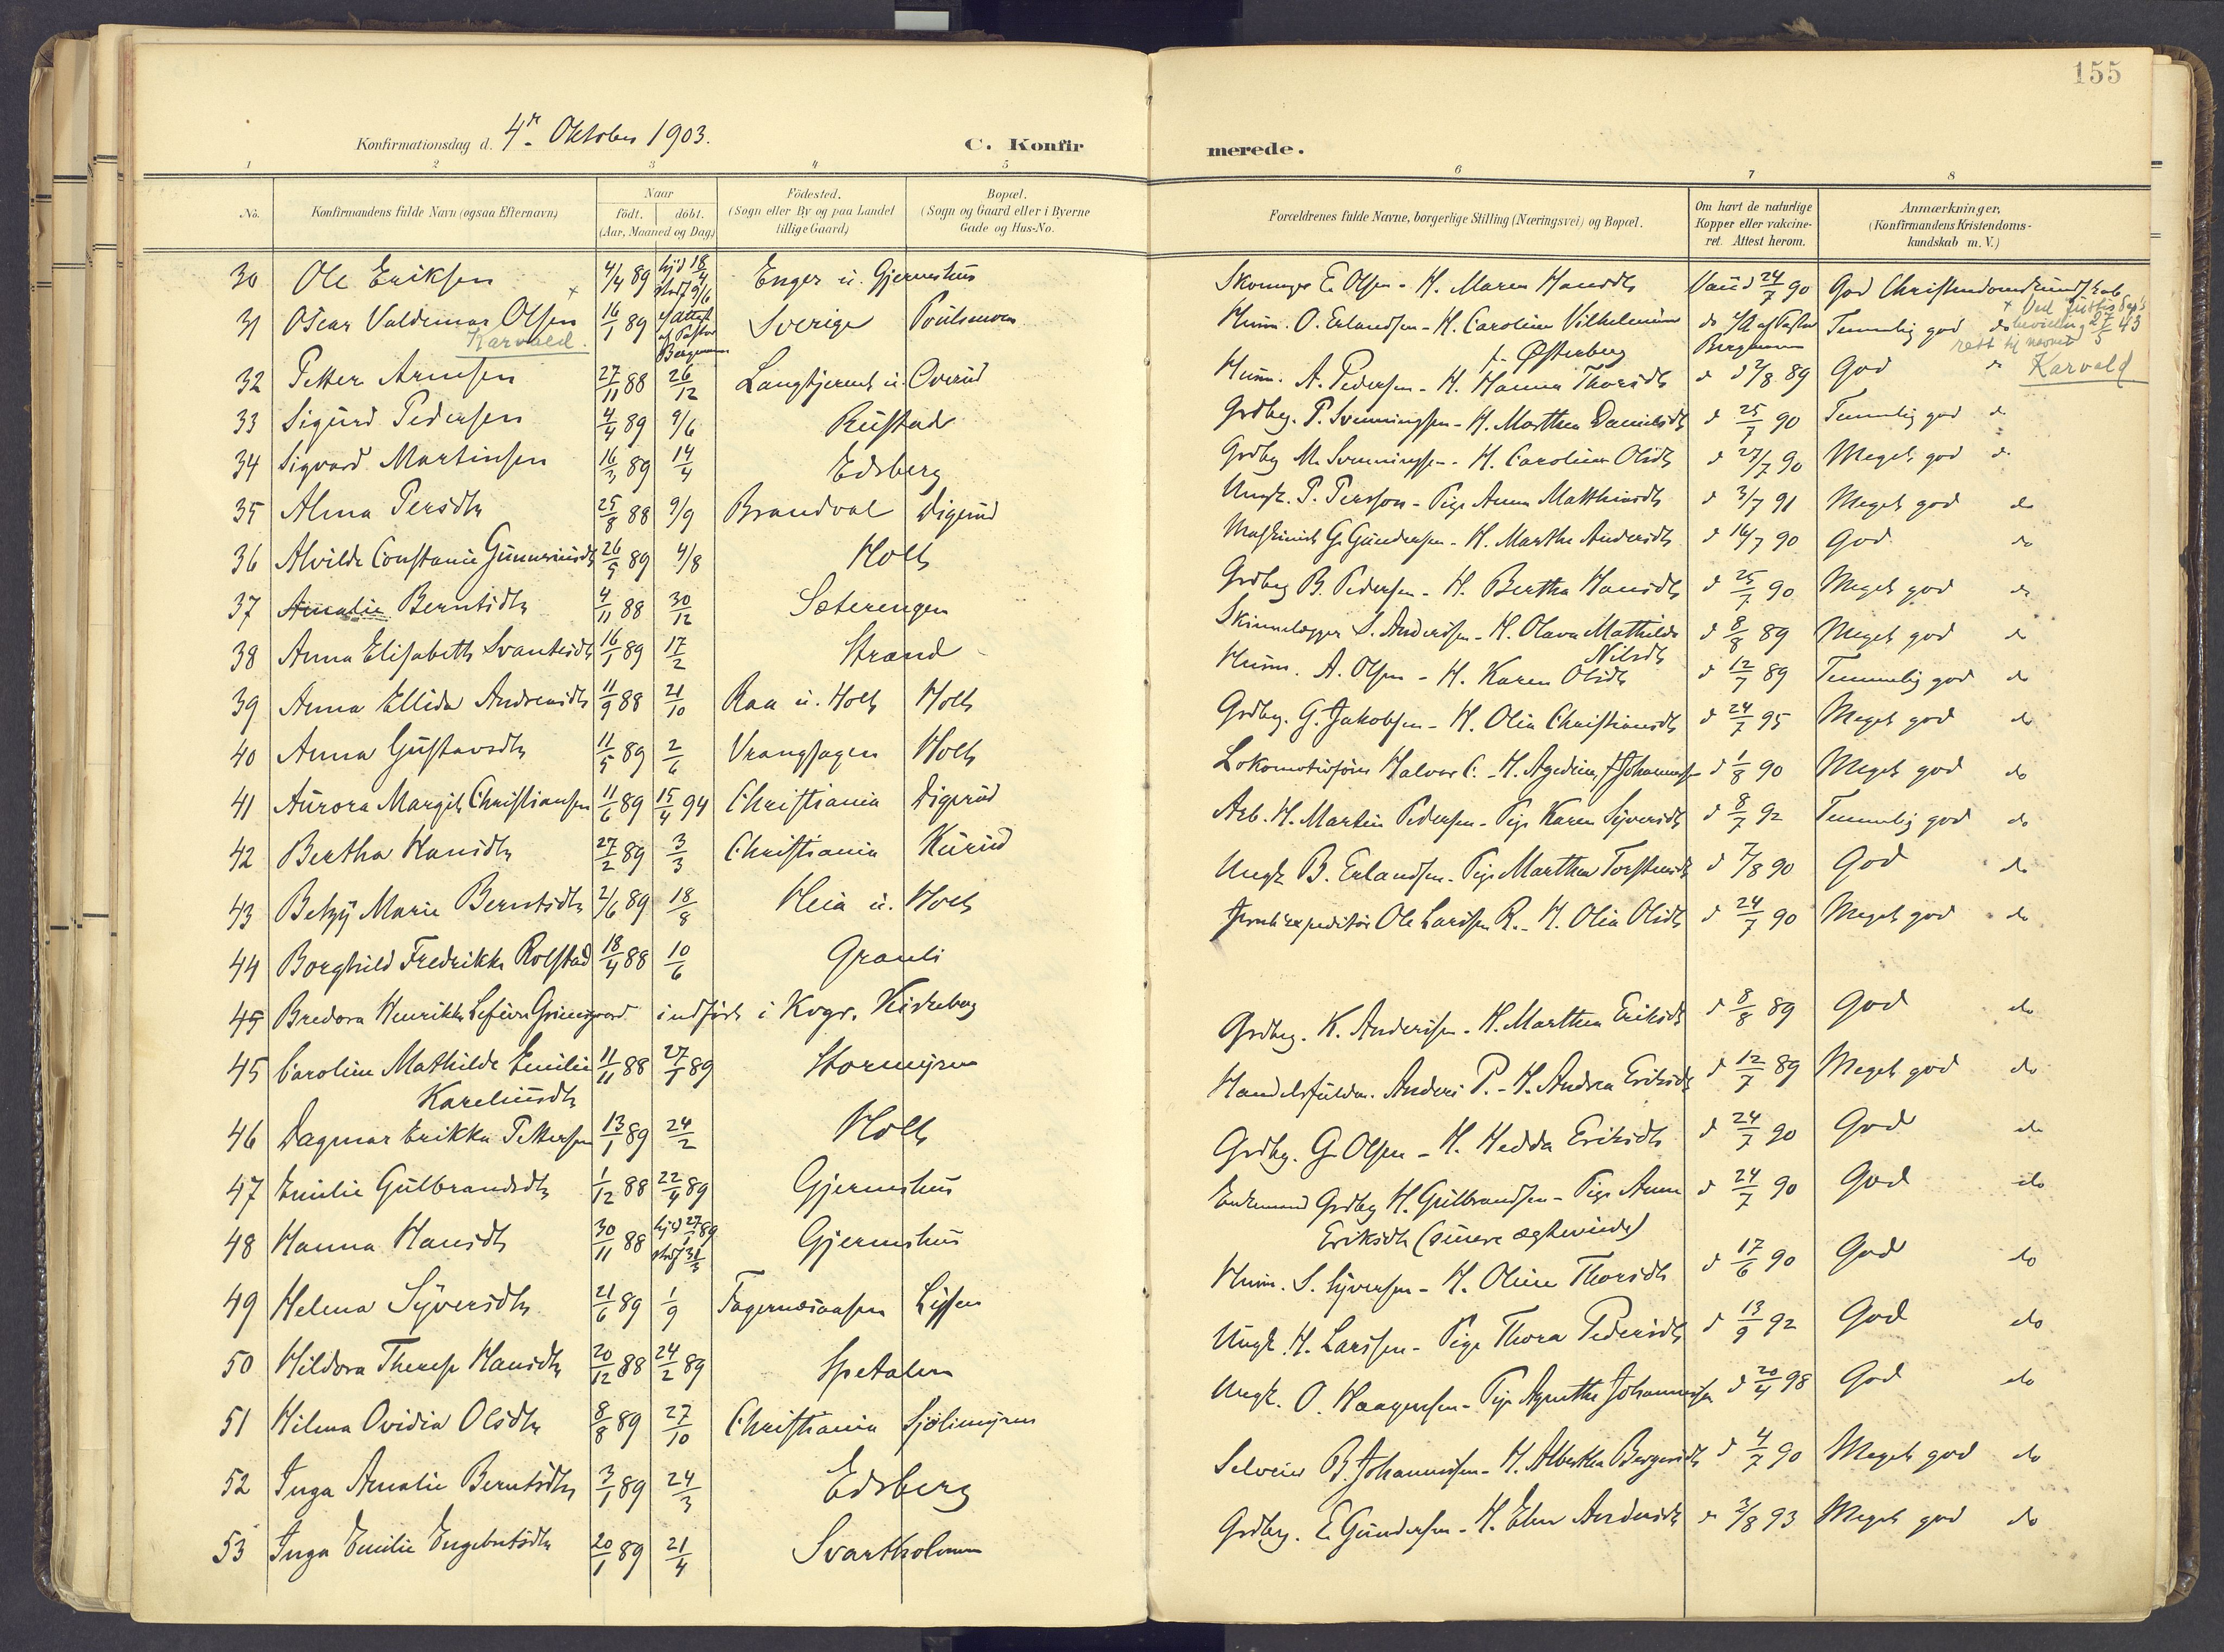 155
Konfirmationsdag d. 4de Oktober 1903.
C. Konfir
merede.
1 2 3 4 5
6 7 8
No.
Konfirmandens fulde Navn (ogsaa Efternavn)
Naar
födt. döbt.
(Aar, Maaned og Dag)
Födested.
(Sogn eller By og paa Landet
tillige Gaard)
Bopæl.
(Sogn og Gaard eller i Byerne
Gade og Hus-No.
Forældrenes fulde Navne, borgerlige Stilling (Næringsvei) og Bopæl.
Om havt de naturlige
Kopper eller vakcine-
ret. Attest herom.
Anmærkninger.
(Konfirmandens Kristendoms-
kundskab m. V.)
30 Ole Eriksen 4/4 89 hjd 18/4 stadf 9/6 Enger u. Gjermshus
31 Oscar Valdemar Olsen x 16/1 89 Sverige Poulsmoen
Karvald.
32 Petter Arnesen 27/11 88 26/12 Overud
33 Sigurd Pedersen 4/4 89 9/6 Rustad
34 Sigvard Martinsen 16/3 89 14/4 Edsberg
35 Alma Persdtr 25/8 88 9/9 Brandval Digerud
36 Alvilde Constanse 26/5 89 4/8 Holt
37 Amalie Berntsdtr 4/11 88 30/12 Sæterengen
38 Anna Elisabeth Svantesdtr 16/1 89 17/2 Strand
39 Anna Ellida Andreasdtr 11/9 88 21/10 Raa u. Holt Holt
40 Anna Gustavsdtr 11/5 89 2/6 Vranghagen Holt
41 Aurora Margit Christiansen 11/6 89 15/4 94 Christiania Digerud
42 Bertha Hansdtr 27/2 89 3/3 Christiania Kurud
43 Betzy Marie Berntsdtr 2/6 89 18/8 Heia u. Holt
44 Borghild Fredrikke Rolstad 18/4 88 10/6 Granli
45 Bredora Henrikke indført i Kvgr. Kirkebog
45 Caroline Mathilde Emilie 11/11 88 27/1 89 Stormyren
Kareliusdtr
46 Dagmar Erikka Pettersen 13/1 89 24/2 Holt
47 Emilie Gulbrandsdtr 1/12 88 22/4 89 Gjermshus
48 Hanna Hansdtr 30/11 88 hjd 27/1 89 Gjermshus
49 Helena Syversdtr 21/6 89 1/9 Fagernæsaasen
50 Hildora Therese Hansdtr 20/12 88 24/2 89 Spetalen
51 Hilma Ovidia Olsdtr 8/8 89 27/10 Christiania Sjølimyren
52 Inga Amalie Berntsdtr 3/1 89 24/3 Edsberg
53 Inga Emilie Engebretsdtr 20/1 89 21/4 Svartholmen
Skomager E. Olsen - H. Maren Hansdtr Vaccd 24/7 90 God Christendomskundskab
Husm. O. Erlandsen - H. Caroline Vilhelmine do Temmelig god do
f. Østerberg Bergmann
x Ved Justis Dep's
bevilling 27/5 43
rett til navnet
Karvald
Husm. A. Pedersen - H. Hanna Thorsdtr d 2/8 89 God do
Grdbg. P. Svenningsen - H. Marthea Danielsdtr d 25/7 90 Temmelig god do
Grdbg M. Svenningsen - H. Caroline Olsdtr d 27/7 90 Meget god do
Ungk. P. Persson - Pige Anna Matthisdtr d 3/7 91 Meget god do
Maskinist G. Gundersen - H. Marthe Andersdtr d 16/7 90 God do
Grdbg B. Pedersen - H. Bertha Hansdtr d 25/7 90 Meget god do
Skinnelægger S. Anderssen - H. Olava Mathilde d 8/8 89 Meget god do
Nilsdtr
Husm. A. Olsen - H. Karen Olsdtr d 12/7 89 Temmelig god do
Grdbg. G. Jakobsen - H. Olia Christiansdtr d 24/7 95 Meget god do
Lokomotivfører Halvor C. - H. d 1/8 90 Meget god do
Arb. H. Martin Pedersen - Pige Karen Syversdtr d 8/7 92 Temmelig god do
Ungk B. Erlandsen - Pige Marthea Torstensdtr d 7/8 90 God do
Jernb.expeditør Ole Larssen R. - H. Olia Olsdtr d 24/7 90 Meget god do
Grdbg. K. Anderssen - H. Marthea Eriksdtr d 8/8 89 God do
Handelsfuldm. Anders P. - H. Andrea Eriksdtr d 12/7 89 Meget god do
Grdbg. G. Olsen - H. Hedda Eriksdtr d 24/7 90 God do
Enkemand Grdbg H. Gulbrandsen - Pige Anne d 24/7 90 God do
Eriksdtr (senere ægteviede)
Husm. S. Syversen - H. Oline Thorsdtr d 17/6 90 God do
Ungk. H. Larssen - Pige Thora Pedersdtr d 13/9 92 God do
Ungk. O. Haagensen - Pige Agnethe Johannessen d 20/4 98 God do
Selveier B. Johannessen - H. Alberthe d 4/7 90 Meget god do
Grdbg. E. Gundersen - H. Elen Andersdtr d 3/8 93 Meget god do